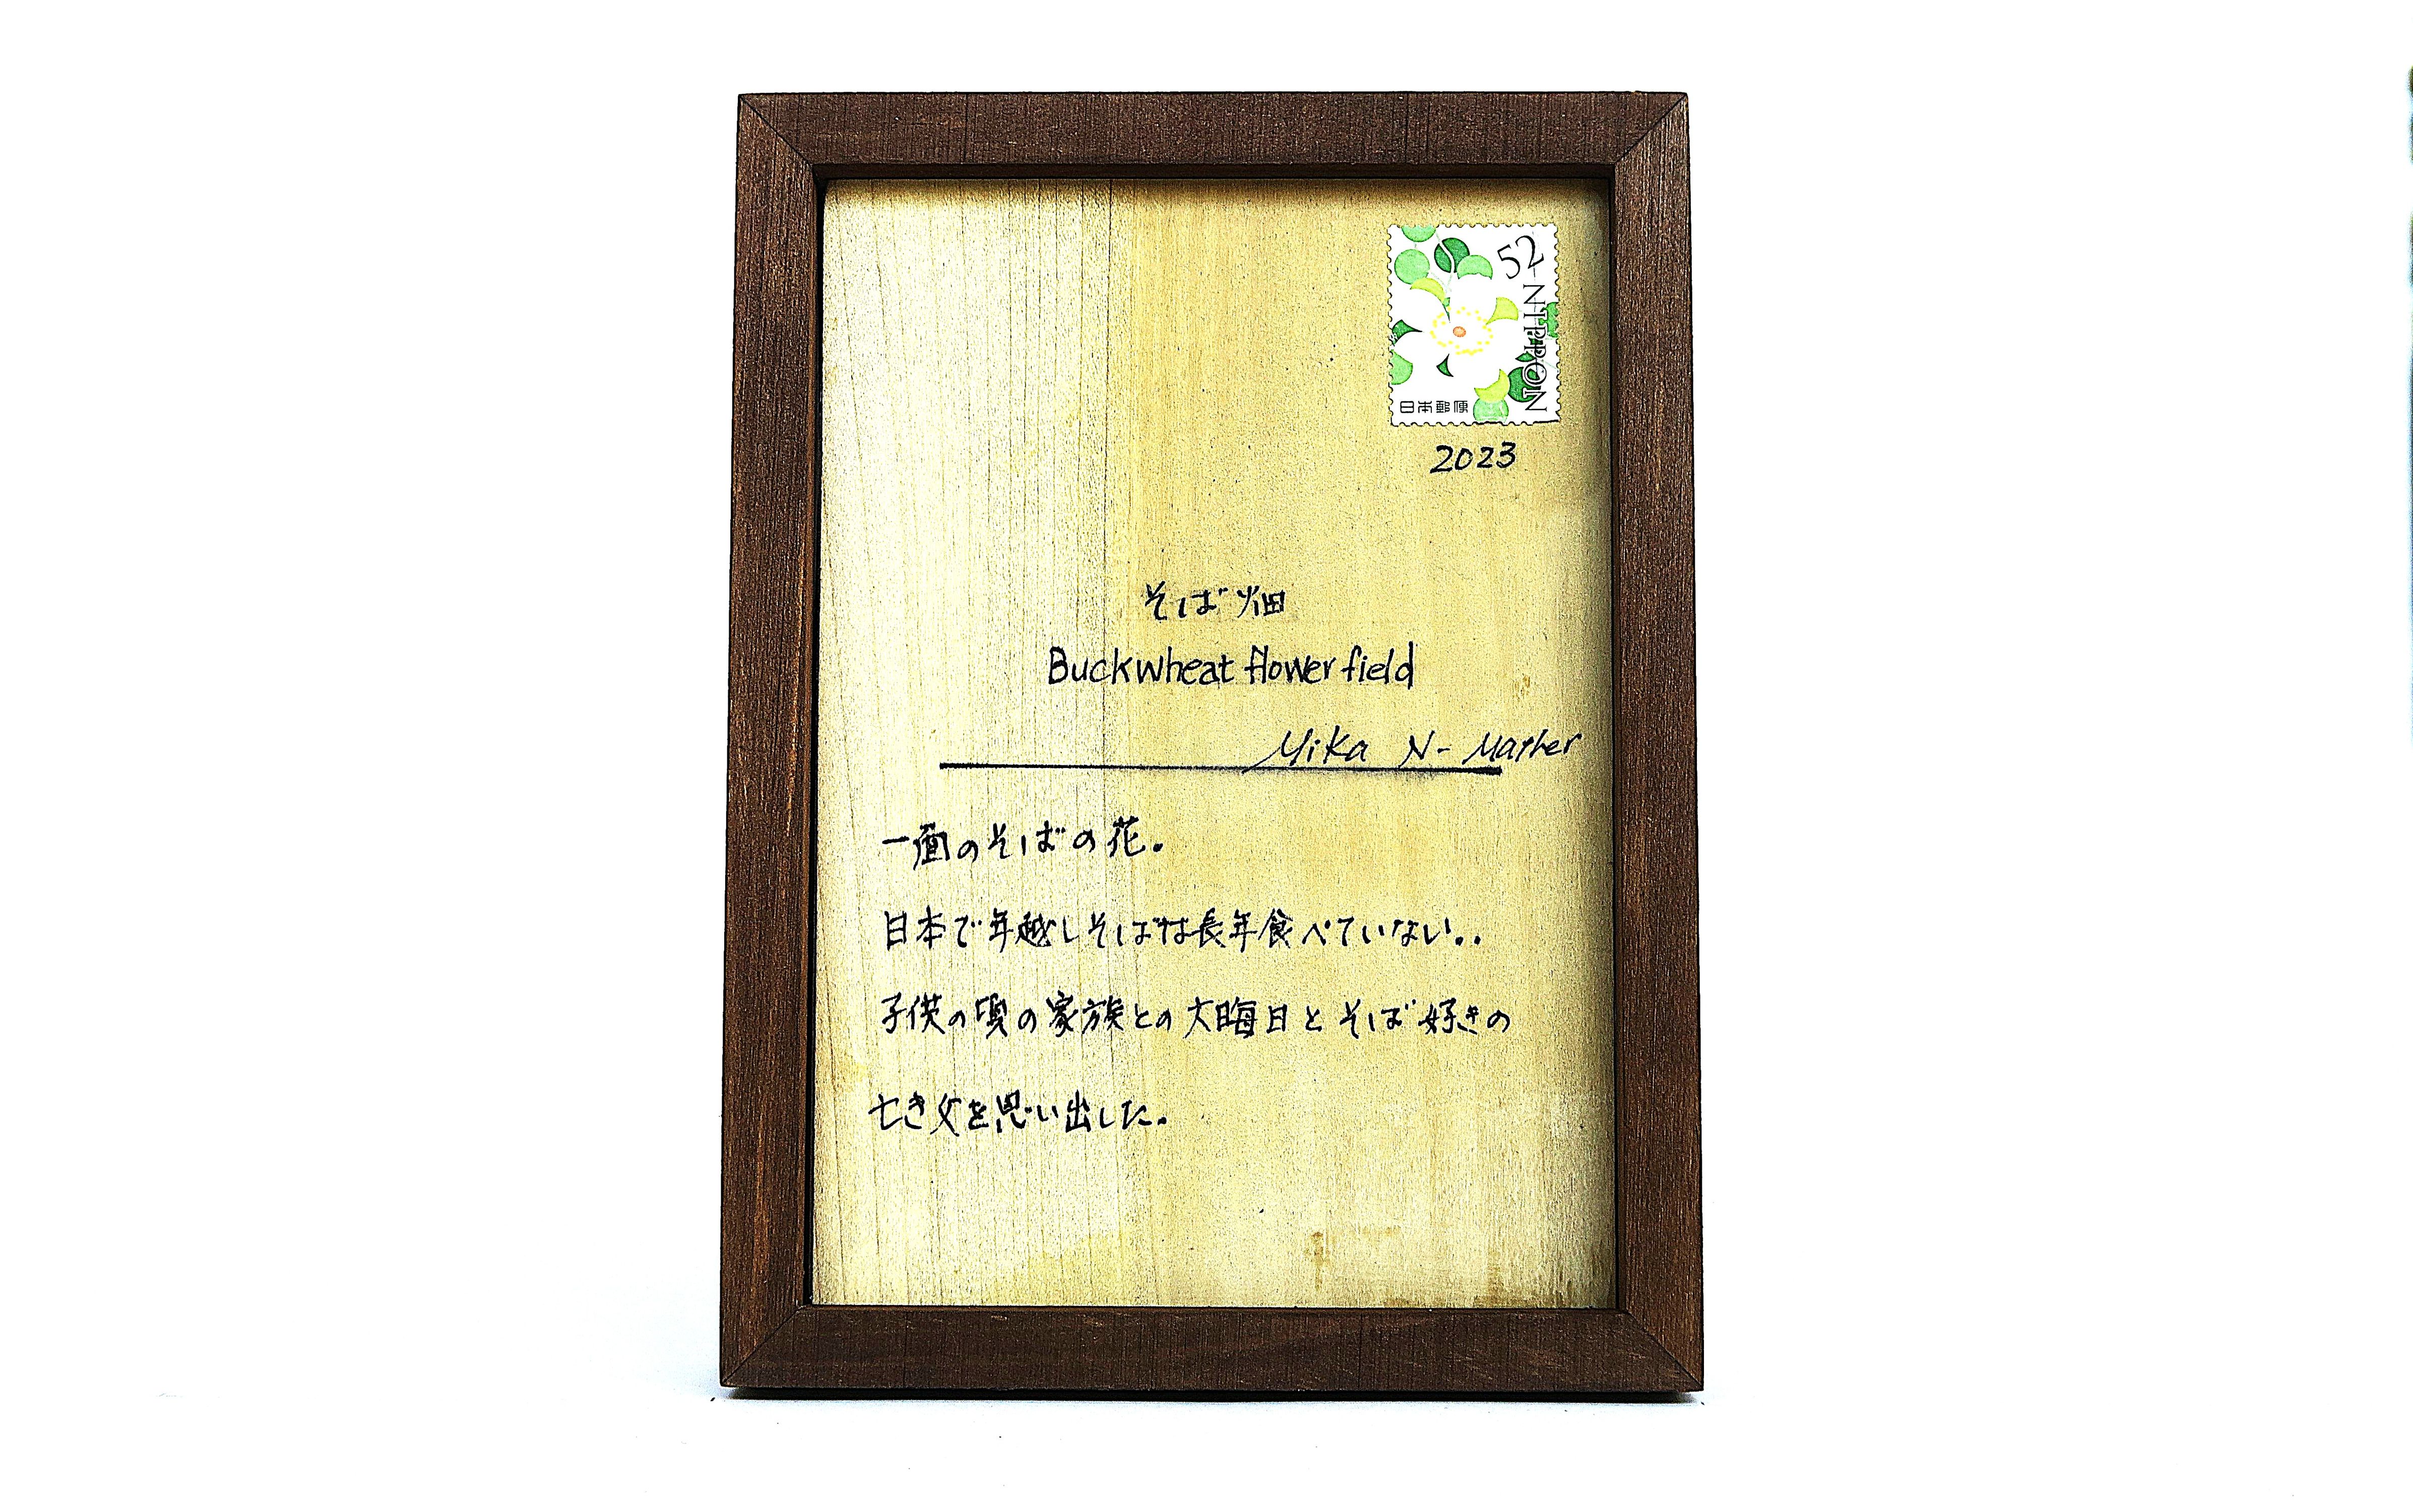 52
NIPPON
日本郵便
2023
そば畑
Buckwheat flower field
Mika N-Mather
一面のそばの花.
日本で年越しそばは長年食べていない..
子供の頃の家族との大晦日とそば好きの
亡き父を思い出した.